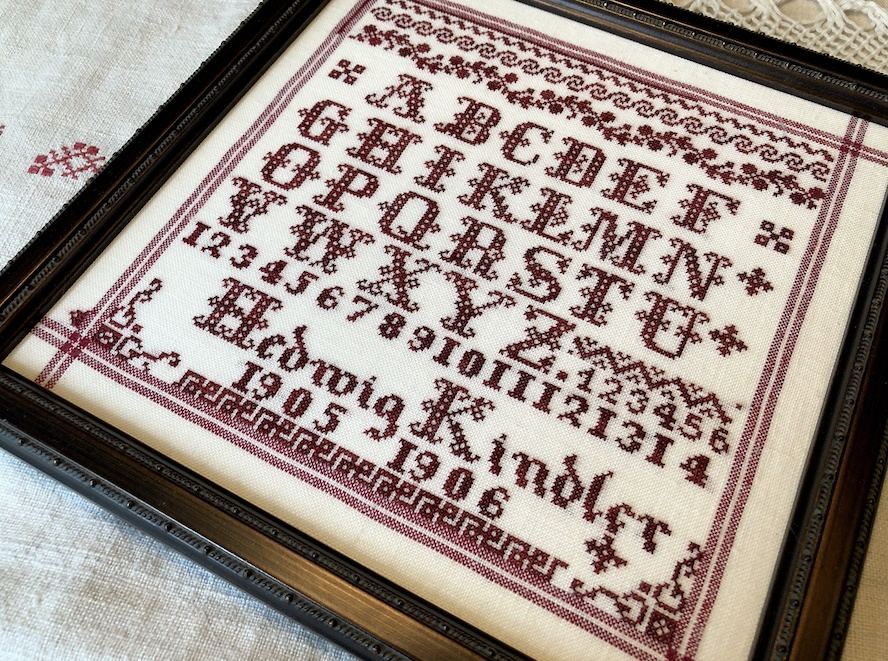 A B C D E F
G H I K L M N
O P Q R S T U
V W X Y Z. 123456
1 2 3 4 5 6 7 8 9 10 11 12 13 14
Hedwig Kindler
1905 1906